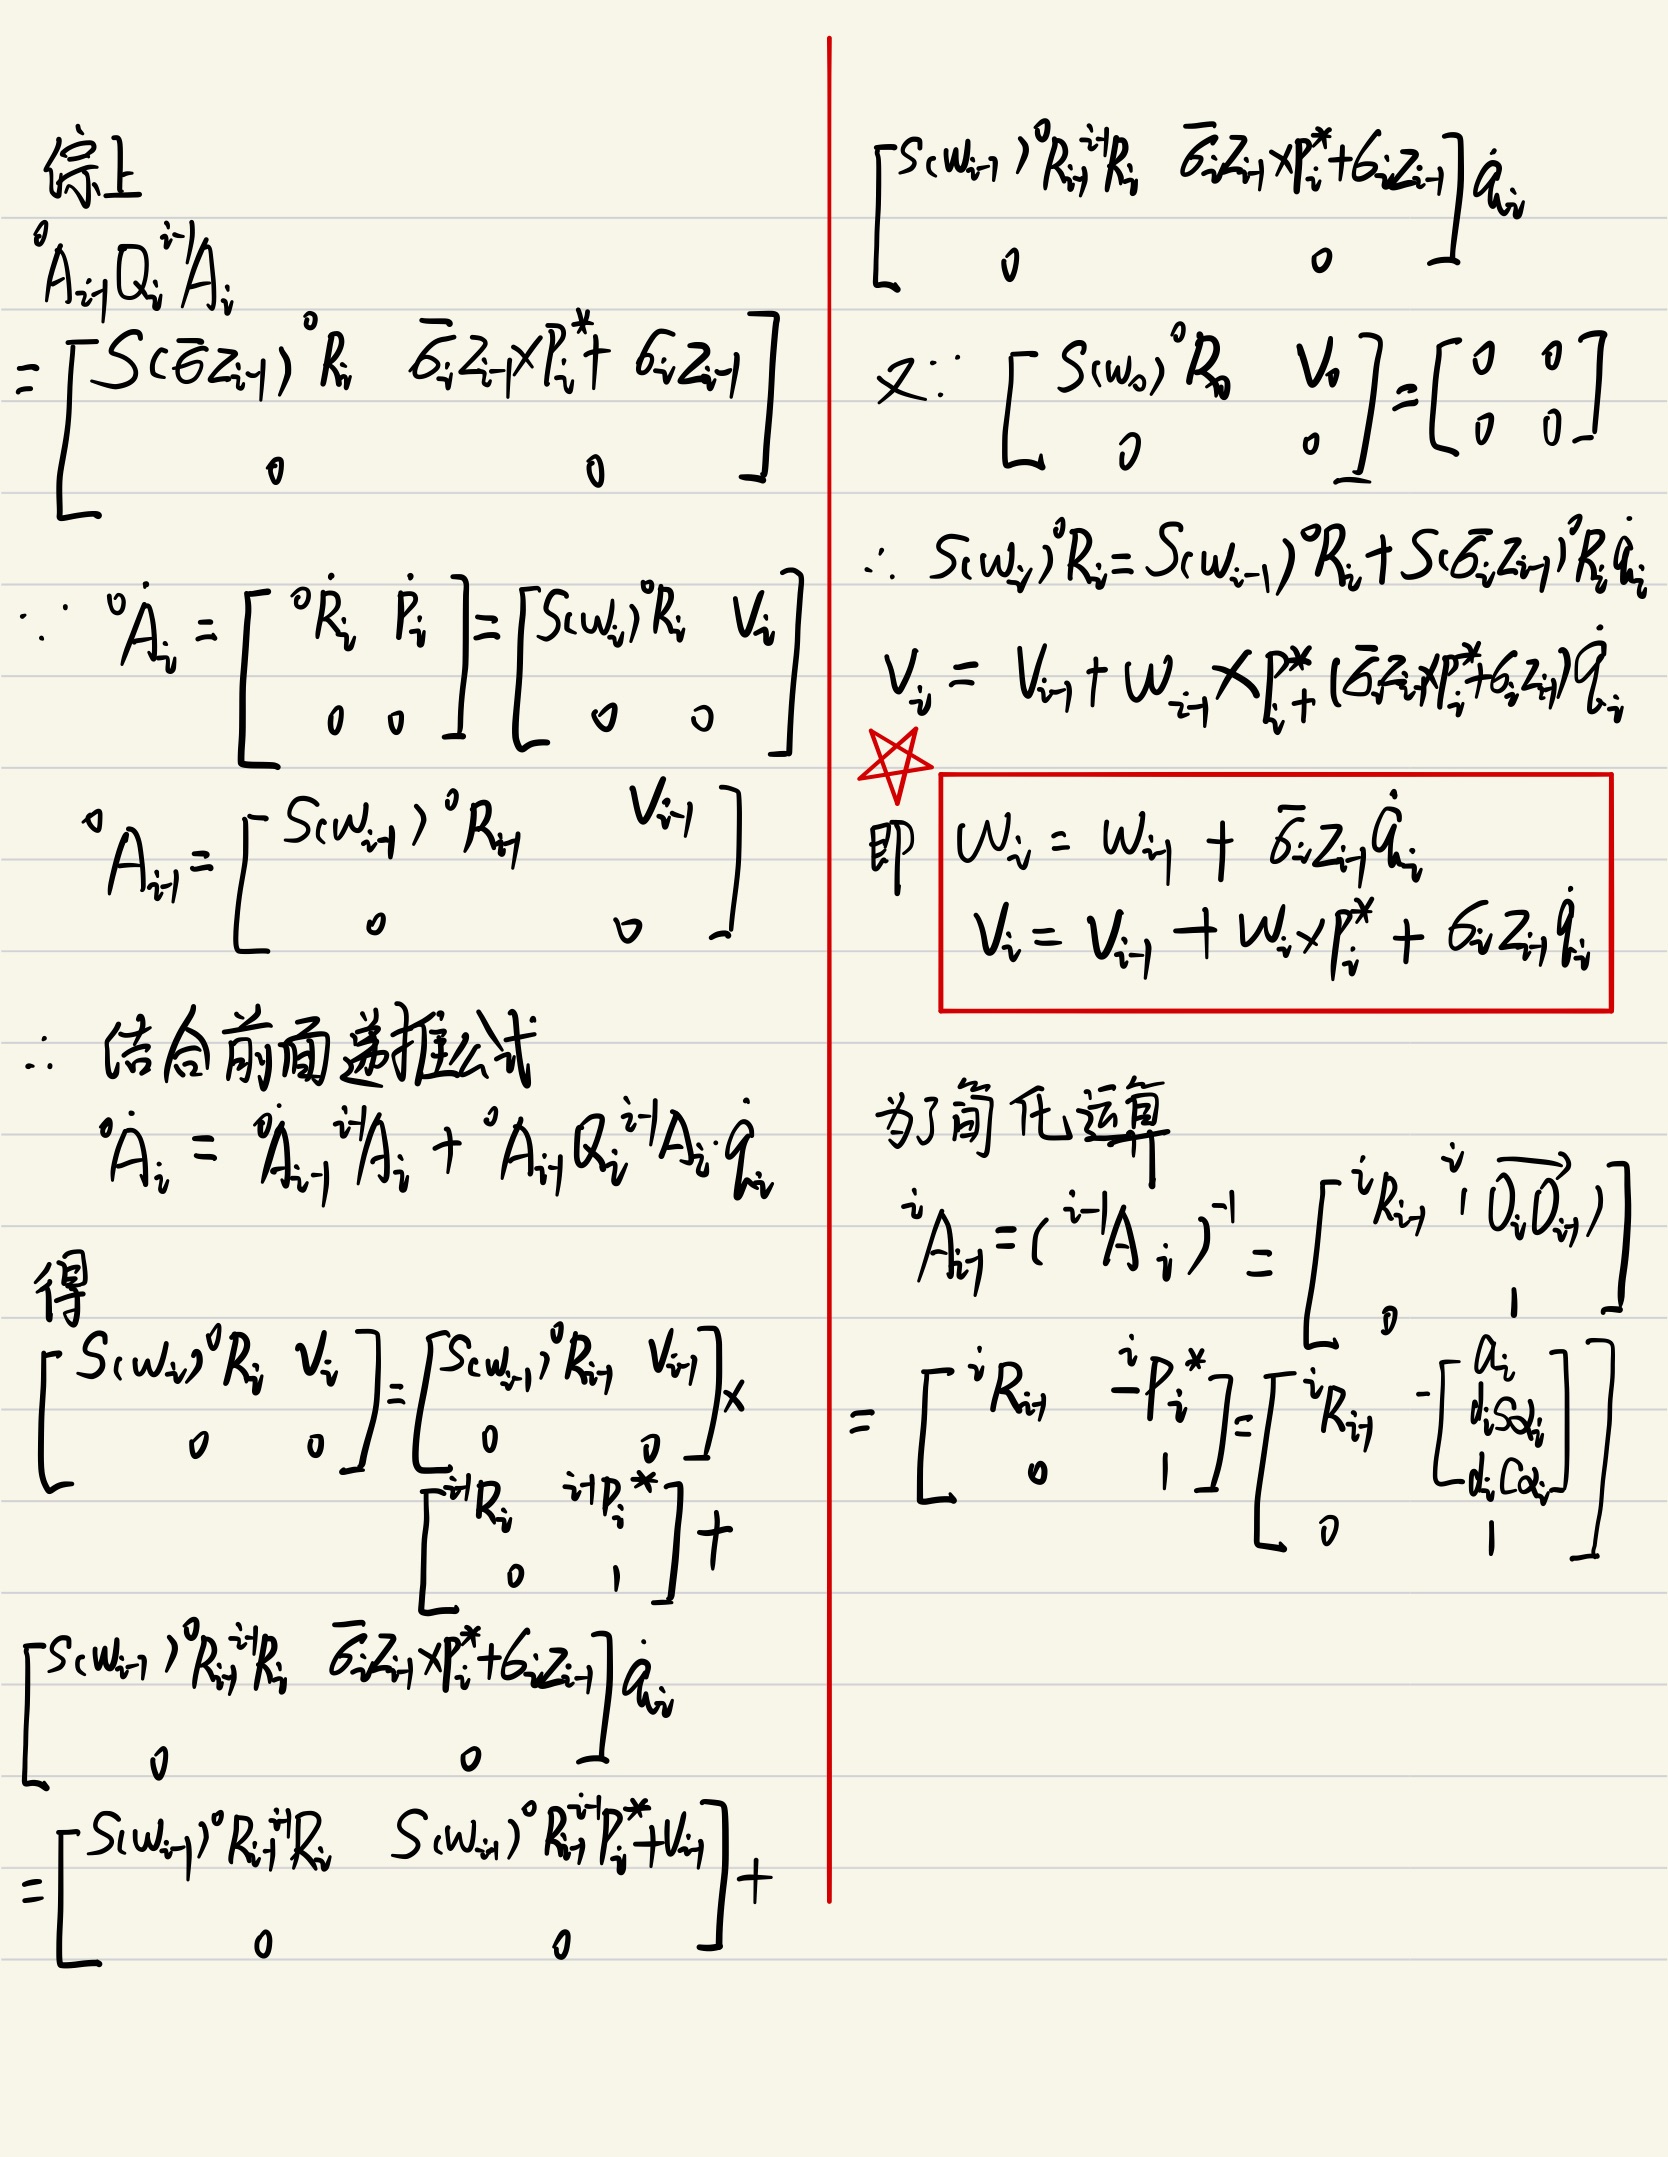 综上
⁰A_{i-1}Q_i ^{i-1}A_i
= [ S(σ̄z_{i-1}) ⁰R_i   σ̄_i z_{i-1}×p_i^* + σ_i z_{i-1} ; 0   0 ]
∵ ⁰Ȧ_i = [ ⁰Ṙ_i   ṗ_i ; 0   0 ] = [ S(w_i) ⁰R_i   v_i ; 0   0 ]
⁰A_{i-1} = [ S(w_{i-1}) ⁰R_{i-1}   v_{i-1} ; 0   0 ]
∴ 结合前面递推公式
⁰Ȧ_i = ⁰Ȧ_{i-1} ^{i-1}A_i + ⁰A_{i-1}Q_i ^{i-1}A_i · q̇_i
得
[ S(w_i) ⁰R_i   v_i ; 0   0 ] = [ S(w_{i-1}) ⁰R_{i-1}   v_{i-1} ; 0   0 ] ×
[ ^{i-1}R_i   ^{i-1}p_i^* ; 0   1 ] +
[ S(w_{i-1}) ⁰R_{i-1} ^{i-1}R_i   σ̄_i z_{i-1}×p_i^* + σ_i z_{i-1} ; 0   0 ] q̇_i
= [ S(w_{i-1}) ⁰R_{i-1} ^{i-1}R_i   S(w_{i-1}) ⁰R_{i-1} ^{i-1}p_i^* + v_{i-1} ; 0   0 ] +
[ S(w_{i-1}) ⁰R_{i-1} ^{i-1}R_i   σ̄_i z_{i-1}×p_i^* + σ_i z_{i-1} ; 0   0 ] q̇_i
又∵ [ S(w_0) ⁰R_0   v_0 ; 0   0 ] = [ 0   0 ; 0   0 ]
∴ S(w_i) ⁰R_i = S(w_{i-1}) ⁰R_i + S(σ̄_i z_{i-1}) ⁰R_i q̇_i
v_i = v_{i-1} + w_{i-1}×p_i^* + (σ̄_i z_{i-1}×p_i^* + σ_i z_{i-1}) q̇_i
即 w_i = w_{i-1} + σ̄_i z_{i-1} q̇_i
v_i = v_{i-1} + w_i×p_i^* + σ_i z_{i-1} q̇_i
为了简化运算
^iA_{i-1} = (^{i-1}A_i)^{-1} = [ ^iR_{i-1}   ^i(O_iO_{i-1}→) ; 0   1 ]
= [ ^iR_{i-1}   -^ip_i^* ; 0   1 ] = [ ^iR_{i-1}   -[ a_i ; d_i sα_i ; d_i cα_i ] ; 0   1 ]